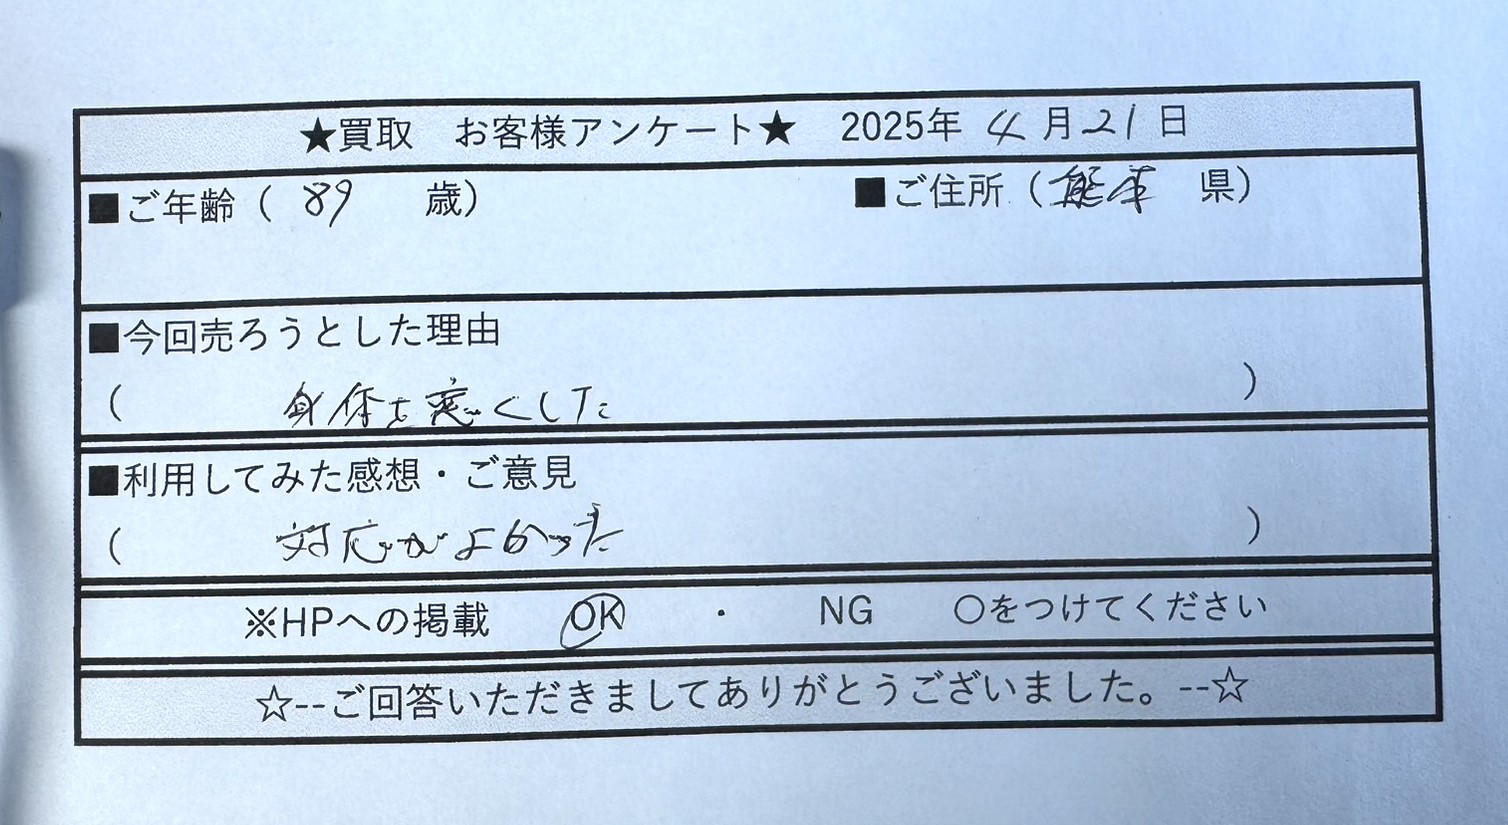 ★買取 お客様アンケート★ 2025年 4月21日
■ご年齢（ 89 歳） ■ご住所（熊本 県）
■今回売ろうとした理由
（ 身体を悪くした ）
■利用してみた感想・ご意見
（ 対応がよかった ）
※HPへの掲載 OK ・ NG ○をつけてください
☆--ご回答いただきましてありがとうございました。--☆